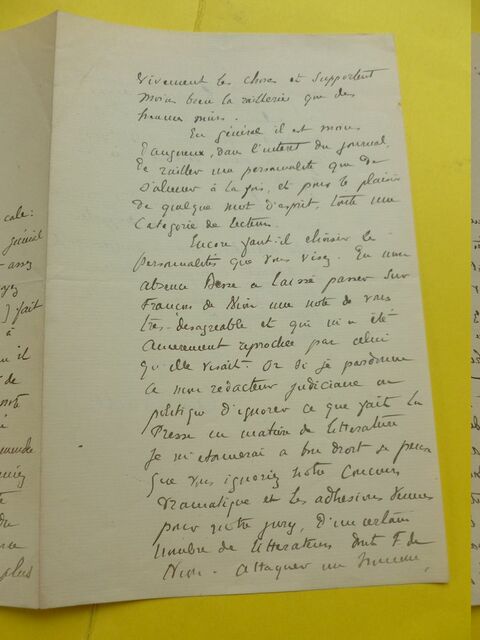 cale:
général
assez
] fait
à
il
de
note
du
plus
vivement les choses et supportent
moins bien la raillerie que des
hommes mûrs.
En général il est moins
dangereux, dans l'intérêt du journal,
de railler une personnalité que de
s'aliéner à la fois, et pour le plaisir
de quelque mot d'esprit, toute une
catégorie de lecteurs.
Encore faut-il choisir les
personnalités que vous visez. En mon
absence a laissé passer sur
François de Nion une note de vous
très-désagréable et qui m'a été
amèrement reprochée par celui
qu'elle visait. Or si je pardonne
à mon rédacteur judiciaire ou
politique d'ignorer ce que fait la
Presse en matière de littérature
je m'étonnerai à bon droit je pense
que vous ignoriez notre Concours
Dramatique et les adhésions venues
pour notre jury, d'un certain
nombre de littérateurs dont F. de
Nion. Attaquer un homme,